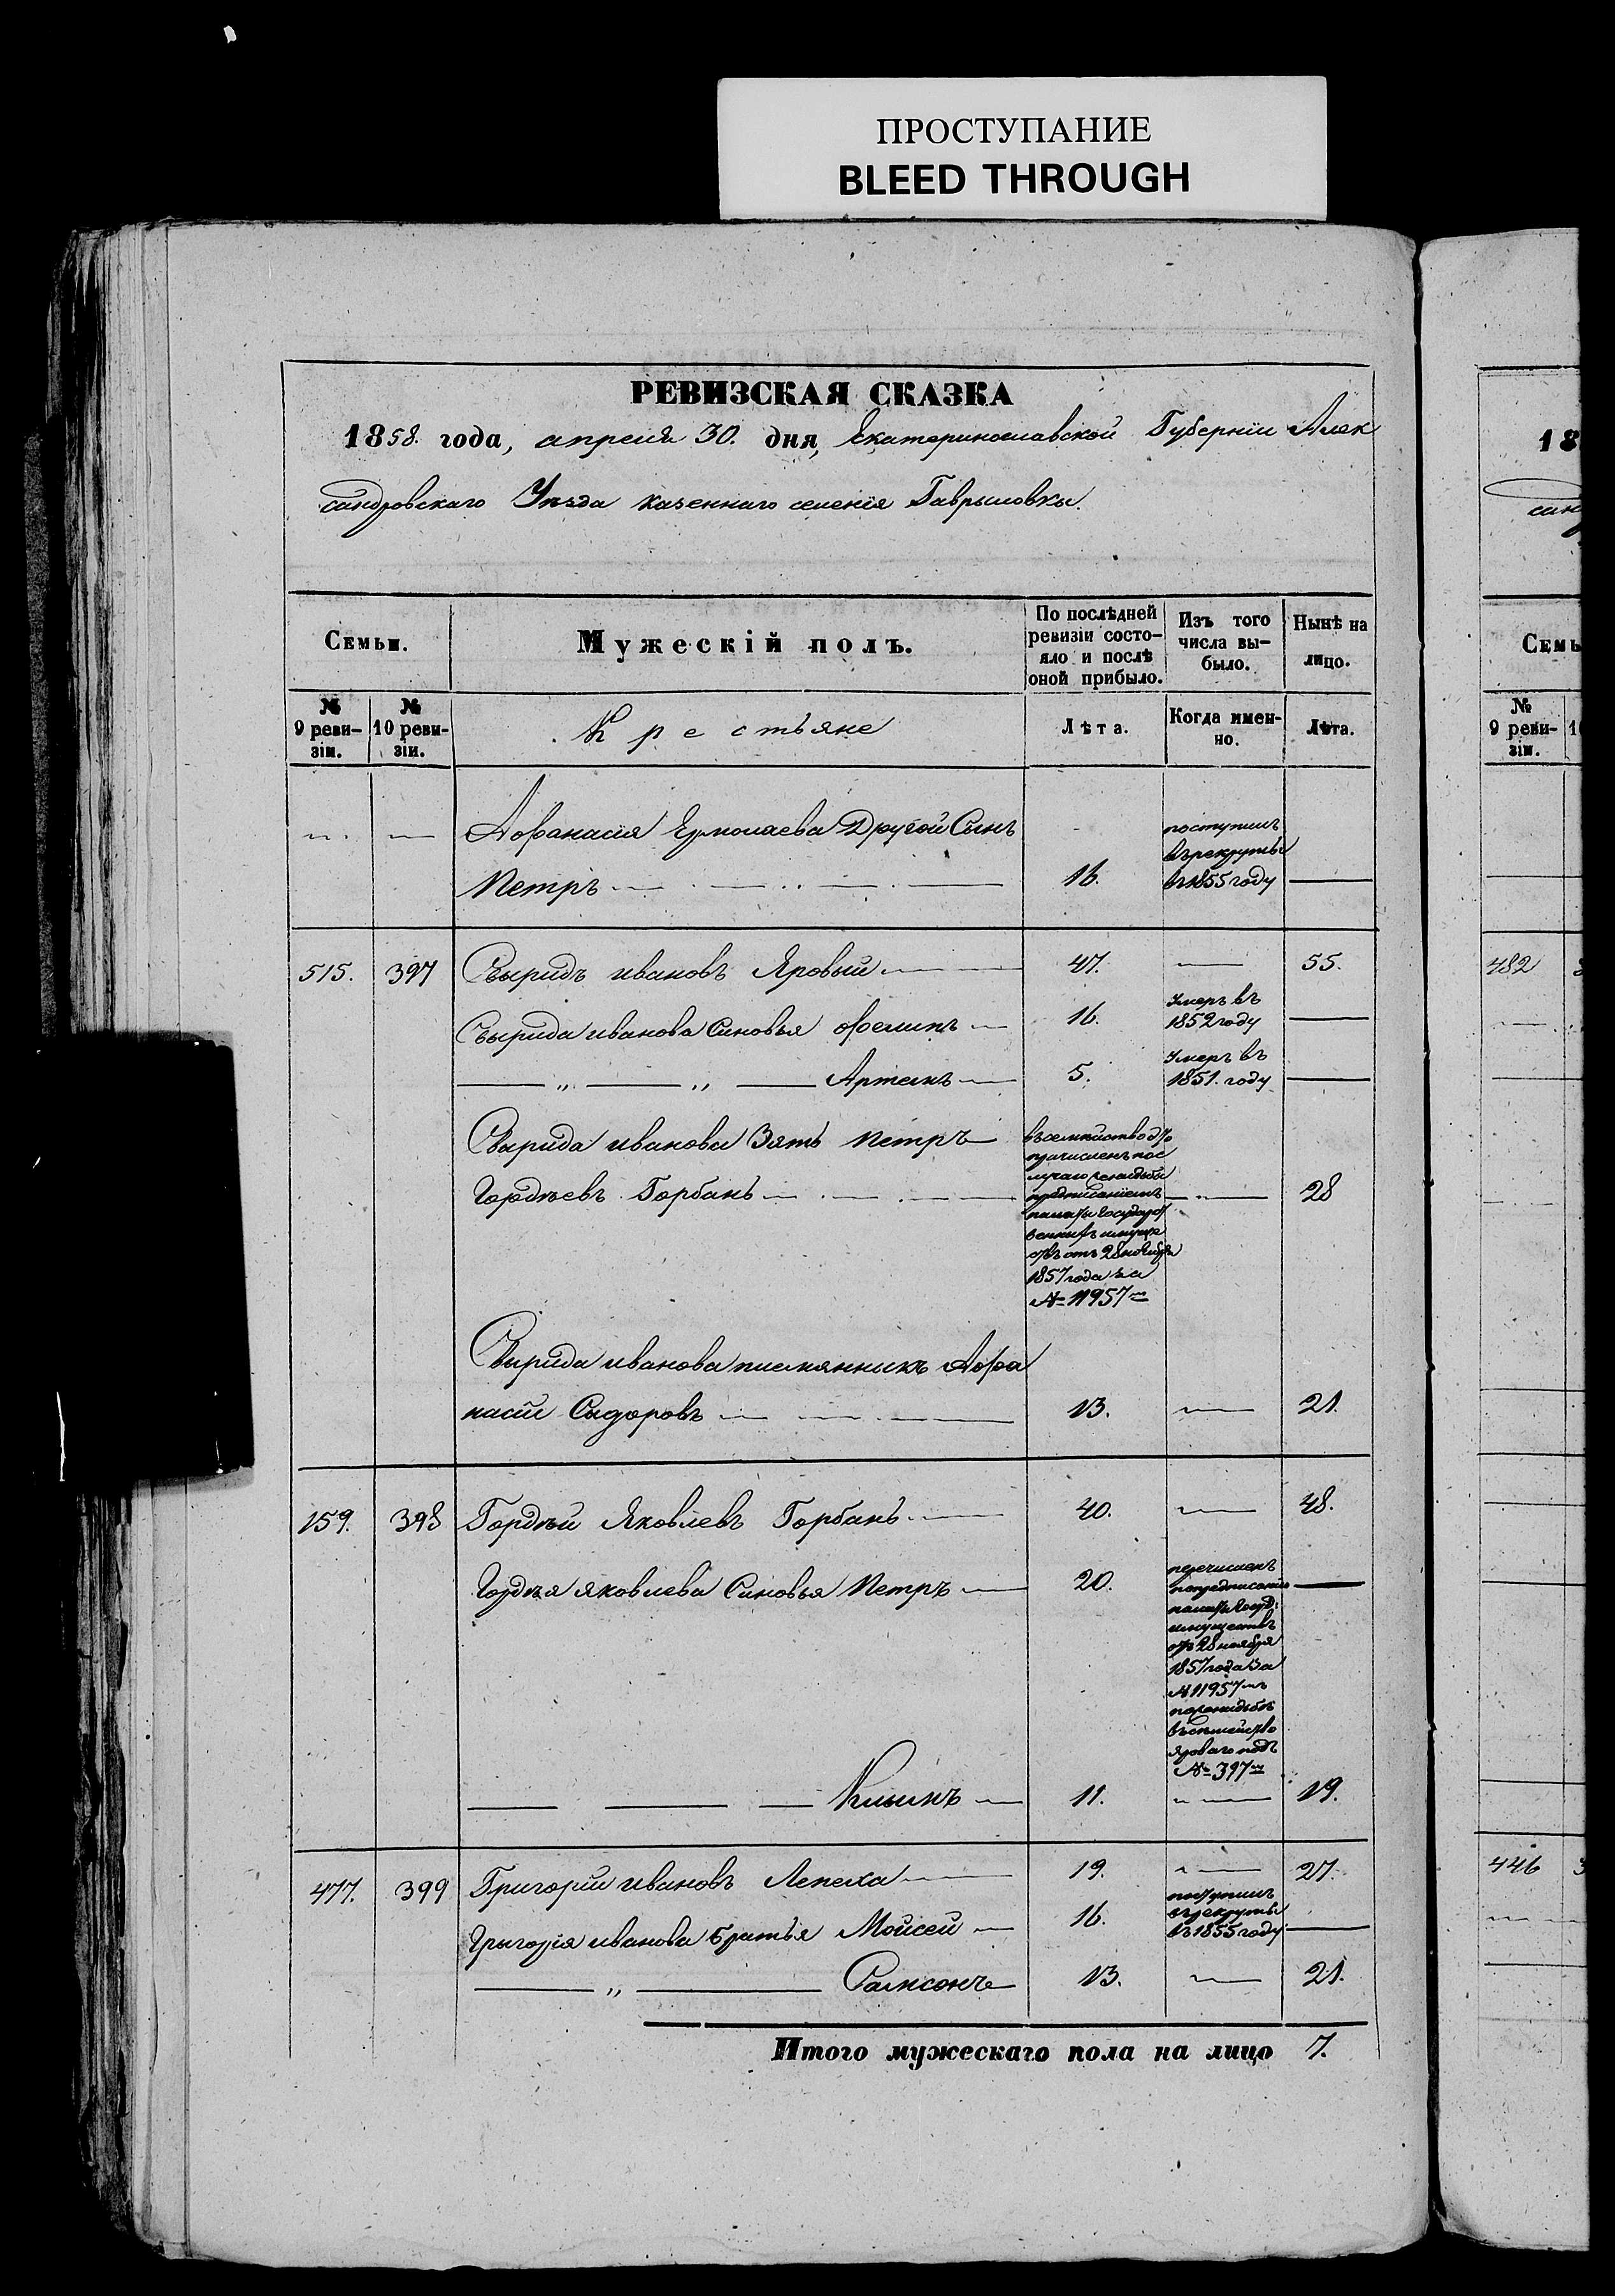 ПРОСТУПАНИЕ
BLEED THROUGH
РЕВИЗСКАЯ СКАЗКА
1858. года, апреля 30. дня, Екатеринославской Губерніи Алек
сандровскаго Уѣзда казеннаго селенія Гаврыловкы.
Семьи.
Мужескій полъ.
По послѣдней
ревизіи состо-
яло и послѣ
оной прибыло.
Изъ того
числа вы-
было.
Нынѣ на
лицо.
№
9 реви-
зіи.
№
10 реви-
зіи.
Крестьяне
Лѣта.
Когда имен-
но.
Лѣта.
Афанасія Ермолаева Другой Сынъ
Петръ 16.
поступилъ
въ рекруты
въ 1855 году
515. 397 Свыридъ ивановъ Яровый 47. 55.
Свырида иванова Сыновья Филипъ 16.
Умеръ въ
1852 году
Артемъ 5.
Умеръ въ
1851. году
Свырида иванова Зять Петръ
Гордѣевъ Горбань 28
въ семейство
причисленъ пос
лучаю женидьбы
предписаніемъ
палаты Государст
венныхъ имуще
ствъ отъ 28 ноября
1857 года за
№ 11957
Свырида иванова племянныкъ Афа
насій Сыдоровъ 13. 21.
159. 398 Гордѣй Яковлевъ Горбань 40. 48.
Гордѣя яковлева Сыновья Петръ 20.
перечисленъ
попредписанію
палаты Госуд:
имуществъ
отъ 28 ноября
1857 года За
№ 11957
поженидьбѣ
въ семейство
Яроваго подъ
№ 397
Климъ 11. 19.
477. 399 Григорій ивановъ Лепеха 19. 27.
Грыгорія иванова братья Мойсей 16.
поступилъ
въ рекруты
въ 1855 году
Самсонъ 13. 21.
Итого мужескаго пола на лицо 7.
18
сан
Семь
№
9 реви-
зіи.
482
446